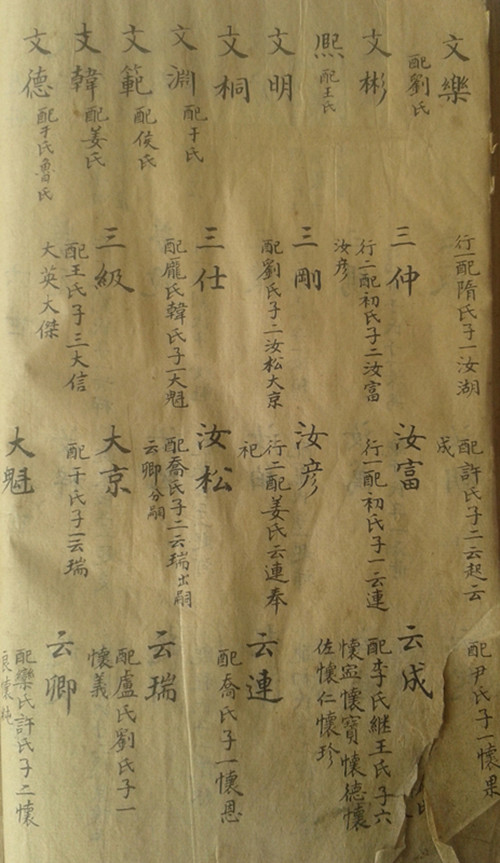 文樂
配劉氏
文彬
熙
配王氏
文明
文桐
文淵
配于氏
文範
配侯氏
文韓
配姜氏
文德
配于氏魯氏
行一配隋氏子一汝湖
三仲
行二配初氏子二汝富
汝彦
三剛
配劉氏子二汝松大京
三仕
配龐氏韓氏子一大魁
三級
配王氏子三大信
大英大傑
配許氏子二云起云
成
汝富
行一配初氏子一云連
汝彦
行二配姜氏云連奉
祀
汝松
配喬氏子二云瑞出嗣
云卿分嗣
大京
配于氏子一云瑞
大魁
配尹氏子一懷果
云成
配李氏継王氏子六
懷寍懷寶懷德懷
佐懷仁懷珍
云連
配喬氏子一懷恩
云瑞
配盧氏劉氏子一
懷義
云卿
配欒氏許氏子二懷